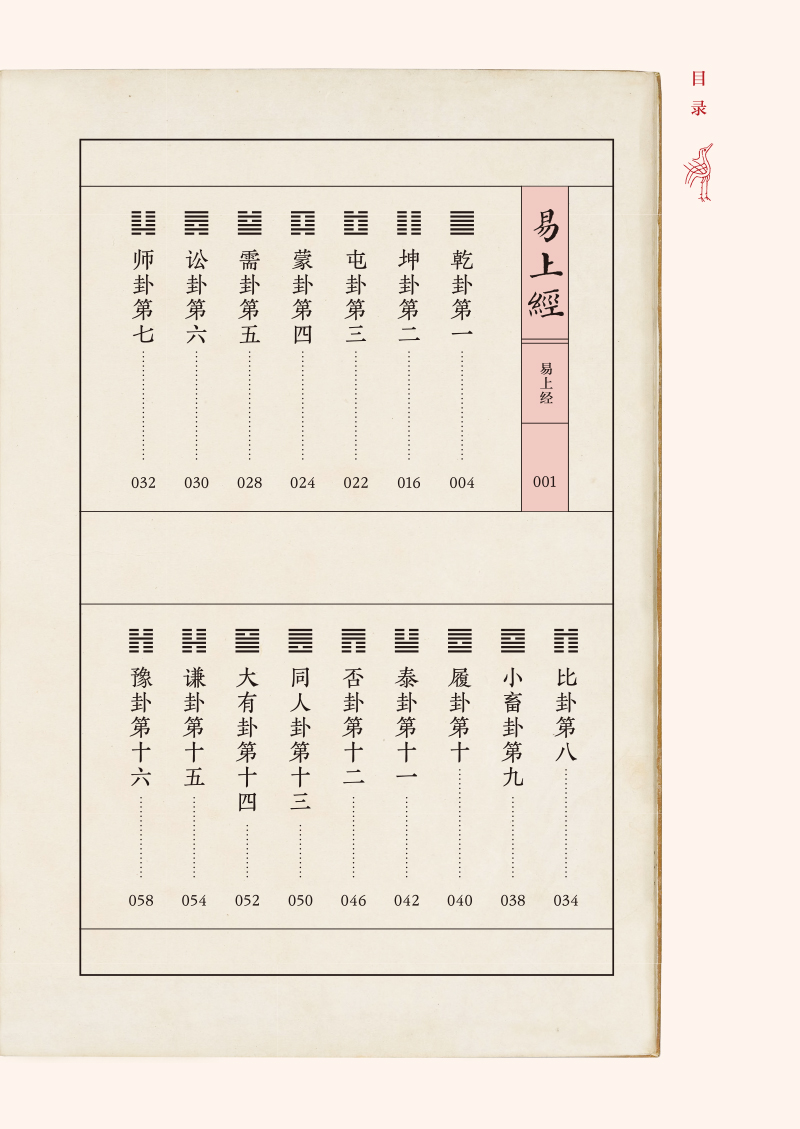 目录
易上經
易上经
001
乾卦第一 004
坤卦第二 016
屯卦第三 022
蒙卦第四 024
需卦第五 028
讼卦第六 030
师卦第七 032
比卦第八 034
小畜卦第九 038
履卦第十 040
泰卦第十一 042
否卦第十二 046
同人卦第十三 050
大有卦第十四 052
谦卦第十五 054
豫卦第十六 058